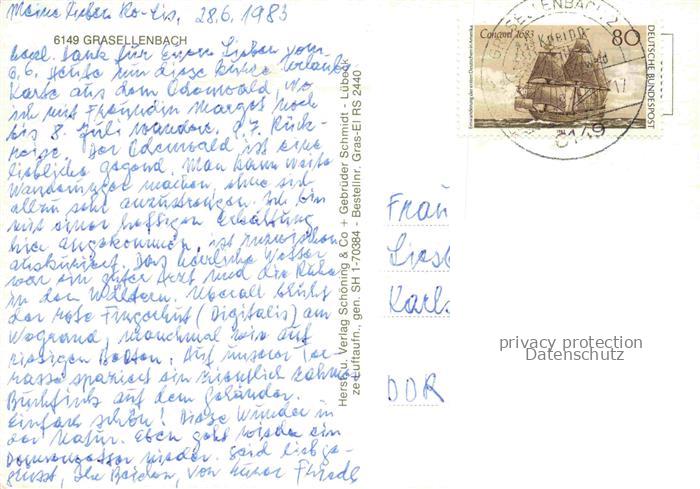 Meine lieben Ro-Lis, 28.6.1983
6149 GRASELLENBACH
herzl. Dank für Euren Lieben vom
6.6. Heute nun diese kurze Urlaubs
Karte aus dem Odenwald, wo
ich mit Freundin Margot noch
bis 8. Juli wandere. 9.7. Rück-
reise. Der Odenwald ist eine
liebliche Gegend. Man kann weite
Wanderungen machen, ohne sich
allzu sehr anzustrengen. Ich bin
mit einer heftigen Erkältung
hier angekommen, ist inzwischen
auskuriert. Das herrliche Wetter
war ein guter Arzt und die Ruhe
in den Wäldern. Überall blüht
der rote Fingerhut (Digitalis) am
Wegrand, manchmal wie auf
riesigen Beeten. Auf unserer Ter-
rasse spaziert ein ziemlich zahmer
Buchfink auf dem Geländer.
Einfach schön! Diese Wunder in
der Natur. Eben geht wieder ein
Donnerwetter nieder. Seid liebge-
grüsst, Ihr Beiden, von Eurer Friedl
Herst. u. Verlag Schöning & Co + Gebrüder Schmidt - Lübeck
ze Luftaufn., gen. SH 1-70384 - Bestellnr. Gras-El RS 2440
GRASELLENBACH 2
6149
Concord 1683
80
DEUTSCHE BUNDESPOST
Einwanderung der ersten Deutschen in Amerika
Frau
Liesl
Karl.
DDR
privacy protection
Datenschutz